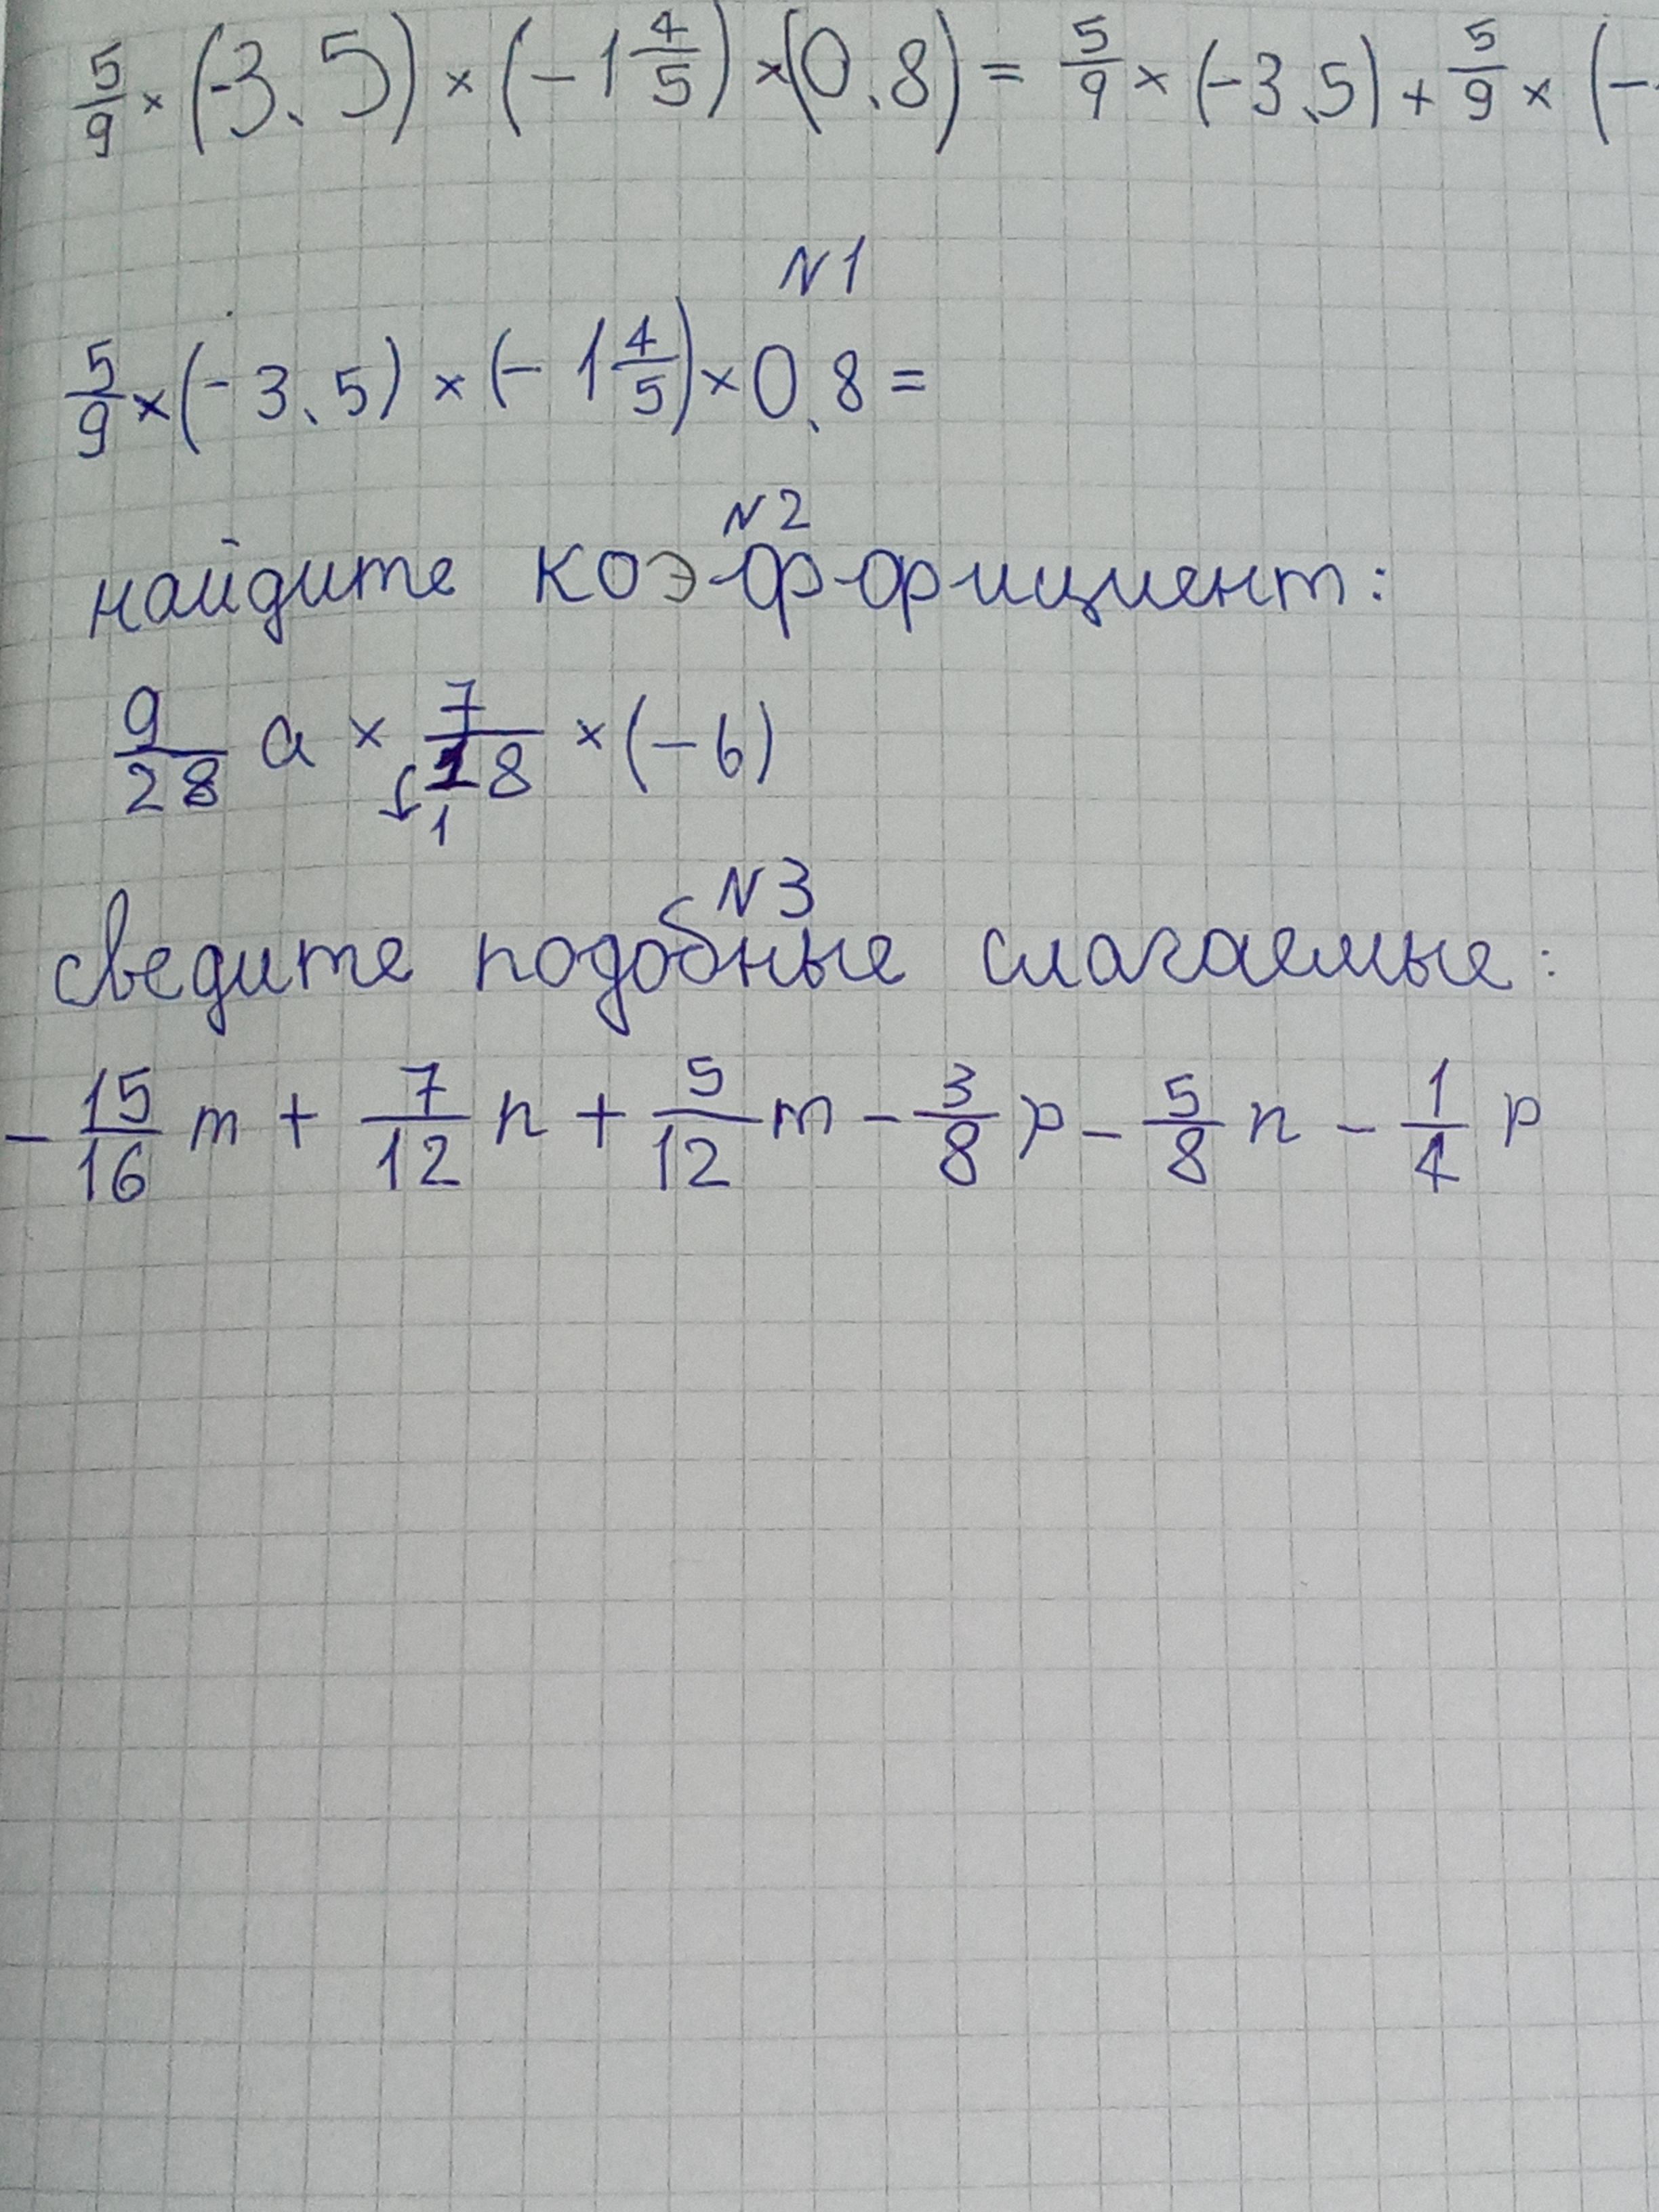 5/9 × (-3,5) × (-1 4/5) × (0,8) = 5/9 × (-3,5) + 5/9 × (-
N1
5/9 × (-3,5) × (-1 4/5) × 0,8 =
N2
найдите коэффициент:
9/28 a × 7/18 × (-6)
1
N3
сведите подобные слагаемые:
- 15/16 m + 7/12 n + 5/12 m - 3/8 p - 5/8 n - 1/4 p